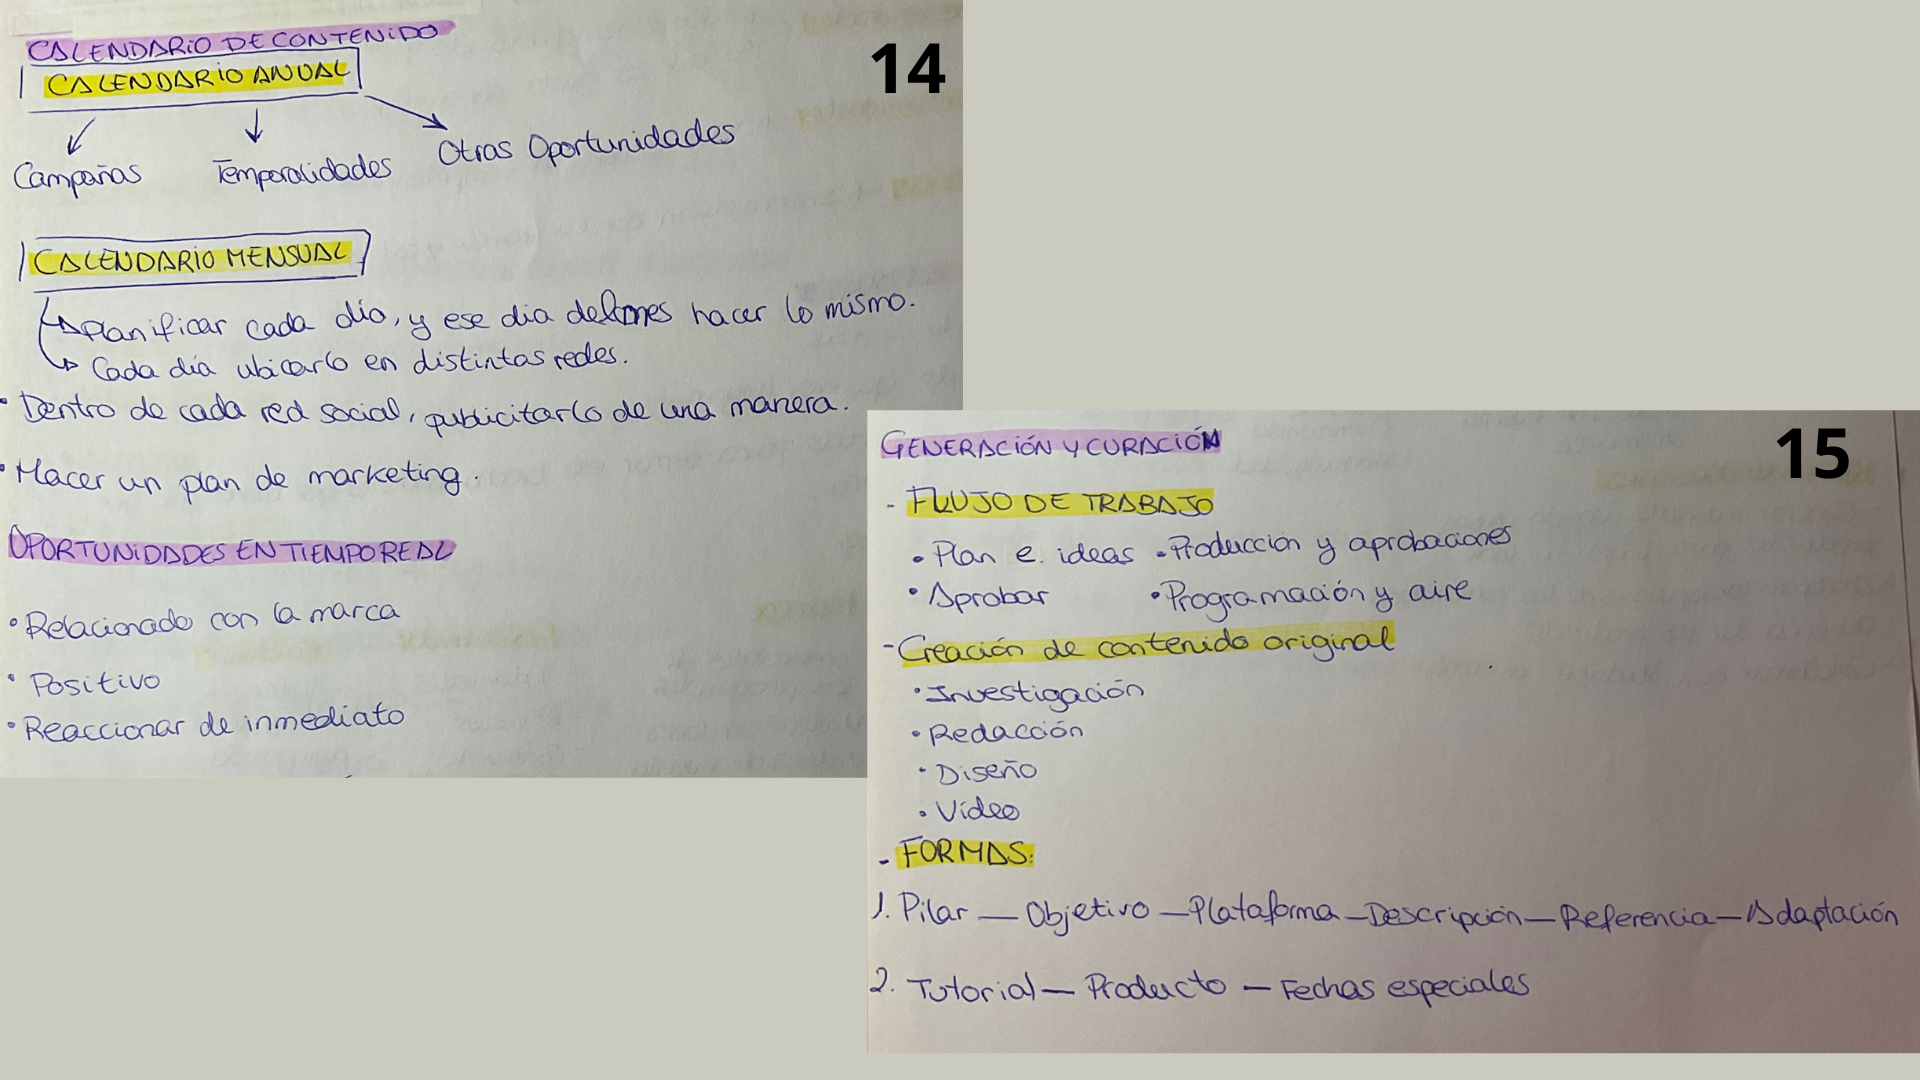 14
CALENDARIO DE CONTENIDO
CALENDARIO ANUAL
Campañas Temporalidades Otras Oportunidades
CALENDARIO MENSUAL
Planificar cada día, y ese dia de mes hacer lo mismo.
Cada día ubicarlo en distintas redes.
• Dentro de cada red social, publicitarlo de una manera.
• Hacer un plan de marketing.
OPORTUNIDADES EN TIEMPO REAL
• Relacionado con la marca
• Positivo
• Reaccionar de inmediato
15
GENERACIÓN Y CURACIÓN
- FLUJO DE TRABAJO
• Plan e. ideas • Producción y aprobaciones
• Aprobar • Programación y aire
- Creación de contenido original
• Investigación
• Redacción
• Diseño
• Vídeo
- FORMAS:
1. Pilar — Objetivo — Plataforma — Descripción — Referencia — Adaptación
2. Tutorial — Producto — Fechas especiales